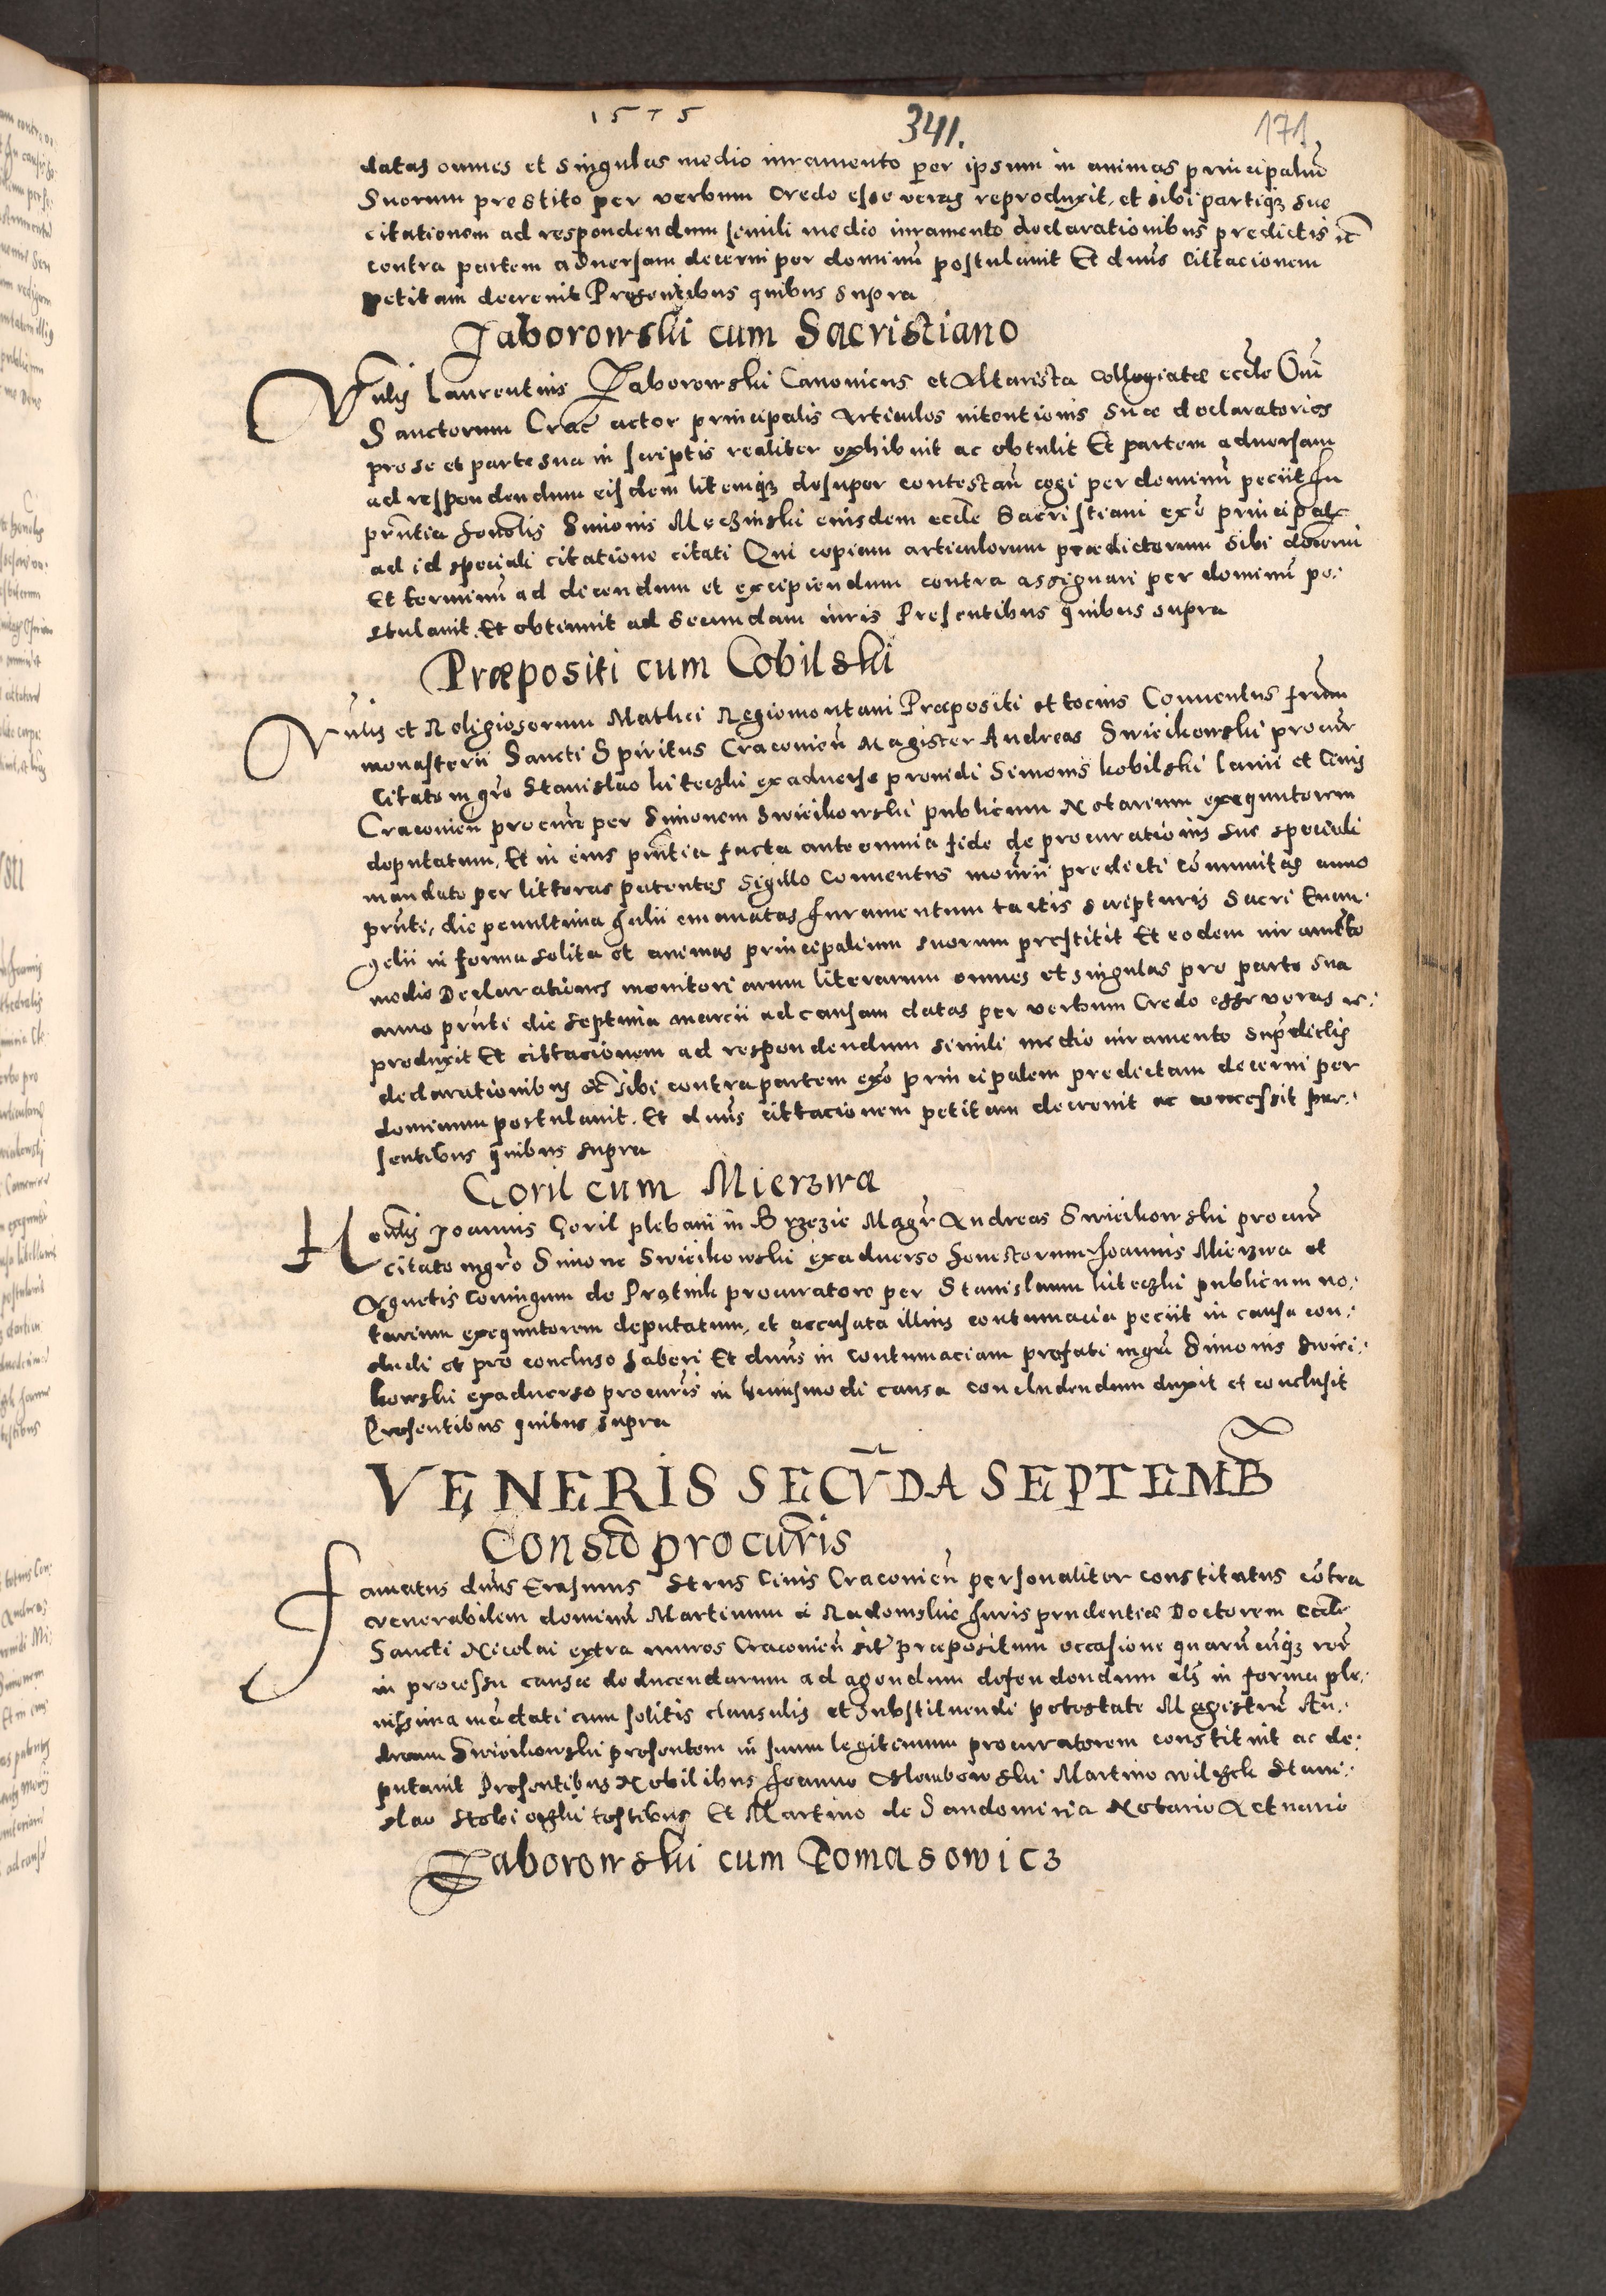 1575 341. 171
datas omnes et singulas medio iuramento per ipsum in animas principaliũ
Suorum prestito per verbum Credo esse veras reproduxit, et sibi partiqȝ sue
citationem ad respondendum simili medio iuramento declarationibus predictis ꝛc̃
contra partem aduersam decerni per dominũ postulauit Et dnũs Cittacionem
petitam decreuit Presentibus quibus supra
Zaborowski cum Sacristiano
Vnlis Laurentius Zaborowski Canonicus et Altarista Collegiatæ eccle Oĩũ
Sanctorum Crac̃ actor principalis Articulos intentionis Suæ declaratorios
pro se et parte sua in scriptis realiter exhibuit ac obtulit Et partem aduersam
ad respondendum eisdem litemqȝ desuper contestañ cogi per dominũ peciit In
prñtia honolis Simonis Meczinski eiusdem eccle Sacristiani exõ principal
ad id speciali citatione citati Qui copiam articulorum prædictorum Sibi decerni
Et terminũ ad dicendum et excipiendum contra assignari per dominũ po:
stulauit. Et obtinuit ad Secundam iuris Presentibus quibus supra
Præpositi cum Cobilski
Vnlis et Religiosorum Mathei Regiomontani Præpositi et tocius Conuentus frũm
monasterii Sancti Spiritus Cracouieñ Magister Andreas Swieikowski procur̃
Citato mgr̃o Stanislao Kiteczki exaduerso prouidi Simonis kobilski Lanii et Ciuis
Cracouieñ procure per Simonem Swieikowski publicum Notarium exequutorem
deputatum, Et in eius prñtia facta ante omnia fide de procurationis sue speciali
mandato per litteras patentes Sigillo Conuentus mon̄rii predicti cõmunitas anno
prñti, die penultima Julii emanatas Juramentum tactis scripturis Sacri Euan:
gelii in forma solita et animas principalium suorum prestitit Et eodem iuramẽto
medio Declarationes monitoriarum literarum omnes et singulas pro parte sua
anno prñti die septima marcii ad causam datas per verbum Credo esse veras re:
produxit Et cittacionem ad respondendum simili medio iuramento supr̃dictis
declarationibus ꝛc̃ sibi contra partem exõ principalem predictam decerni per
dominum postulauit. Et dnũs cittacionem petitam decreuit ac concessit præ:
sentibus quibus supra
Goril cum Mierzwa
Honlis Joannis Goril plebani in Brzezie Magr̃ Andreas Swieikowski procur̃
citato mgr̃o Simone Swieikowski exaduerso honestorum Joannis Mierzwa et
Agnetis Coniugum de Prątnik procuratore per Stanislaum kiteczki publicum no:
tarium exequutorem deputatum, et accusata illius contumacia peciit in causa con:
cludi et pro concluso haberi Et dnũs in contumaciam prefati mgr̃i Simonis Swiei:
kowski exaduerso procuris in huiusmodi causa concludendum duxit et conclusit
Presentibus quibus supra
VENERIS SECṼDA SEPTEMB
Constõ procur̃is
Famatus dnũs Erasmus Strus Ciuis Cracouieñ personaliter constitutus cõtra
venerabilem dominũ Martinum à Radomskie Juris prudentiæ Doctorem eccle
Sancti Nicolai extra muros Cracouieñ sit̃ præpositum occasione quarũcũqȝ rer̃
in processu causæ deducendarum ad agendum defendendum als̃ in forma ple:
nissima mãdati cum solitis clausulis et Substituendi potestate Magistrũ An:
dream Swieikowski presentem in suum legitimum procuratorem constituit ac de:
putauit Presentibus Nobilibus Joanne Glembowski Martino wilczek Stani:
slao testibus Et Martino de Sandomiria Notario Actuario
Zaborowski cum Tomasowicz